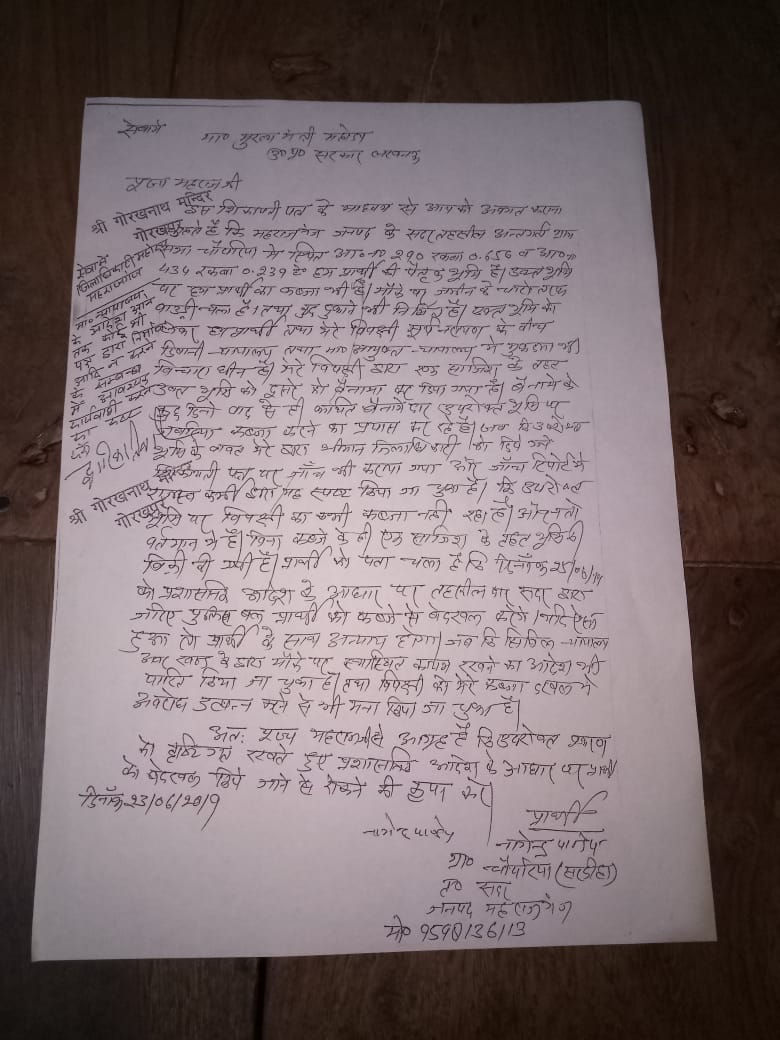 सेवामें
मा० मुख्य मंत्री महोदय
उ०प्र० सरकार लखनऊ
पूज्य महाराज श्री
श्री गोरखनाथ मन्दिर
गोरखपुर
इस शिकायती पत्र के माध्यम से आपको अवगत कराना
है कि महराजगंज जनपद के सदर तहसील अन्तर्गत ग्राम
सभा चौपरिया मे स्थित आ०न० 290 रकबा 0.656 व आ०न०
434 रकबा 0.239 हे० हम प्रार्थी की पैतृक भूमि है। उक्त भूमि
पर हम प्रार्थी का कब्जा भी है। मौके पर जमीन के चारो तरफ
बाउण्ड्री बना है। तथा दुकाने भी निर्मित है। उक्त भूमि को
लेकर हम प्रार्थी तथा मेरे विपक्षी सूर्यनरायण के बीच
दिवानी न्यायालय तथा मा० आयुक्त न्यायालय मे मुकदमा भी
विचाराधीन है। मेरे विपक्षी द्वारा एक साजिश के तहत
उक्त भूमि को दूसरे को बैनामा कर दिया गया है। बैनामे के
कुछ दिनो बाद से ही कथित बैनामेदार उपरोक्त भूमि पर
कब्जा करने का प्रयास कर रहे है। जब कि उपरोक्त
भूमि के बावत मेरे द्वारा श्रीमान जिलाधिकारी को दिये गये
शिकायती पत्र पर जाँच भी कराया गया और जाँच रिपोर्ट मे
राजस्व कर्मी द्वारा यह स्पष्ट किया जा चुका है। कि उपरोक्त
भूमि पर विपक्षी का कभी कब्जा नही रहा है। और न तो
वर्तमान मे है। बिना कब्जे के ही एक साजिश के तहत भूमि की
बिक्री की गयी है। प्रार्थी को पता चला है कि दिनाँक 25/06/19
को प्रशासनिक आदेश के आधार पर तहसीलदार सदर द्वारा
जरिए पुलिस बल प्रार्थी को कब्जे से बेदखल करेंगे। यदि ऐसा
हुआ तो प्रार्थी के साथ अन्याय होगा। जब कि सिविल न्यायालय
के द्वारा मौके पर यथास्थित कायम रखने का आदेश भी
पारित किया जा चुका है। तथा विपक्षी को मेरे कब्जा दखल मे
अवरोध उत्पन्न करने से भी मना किया जा चुका है।
अतः पूज्य महाराज जी से आग्रह है कि उपरोक्त प्रकरण
को दृष्टिगत रखते हुए प्रशासनिक आदेश के आधार पर प्रार्थी
को बेदखल किये जाने से रोकने की कृपा करें।
दिनाँक 23/06/2019
प्रार्थी
नागेन्द्र पाण्डेय
नागेन्द्र पाण्डेय
ग्रा० चौपरिया
त० सदर
जनपद महराजगंज
मो० 9598136113
सेवामें
जिलाधिकारी महोदय
महराजगंज
मा० न्यायालय
के आदेश आने
तक कोई भी
पक्ष द्वारा निर्माण
आदि न करने
के सम्बन्ध
में आवश्यक
कार्यवाही करने
का कष्ट
करें
श्री गोरखनाथ मन्दिर
गोरखपुर